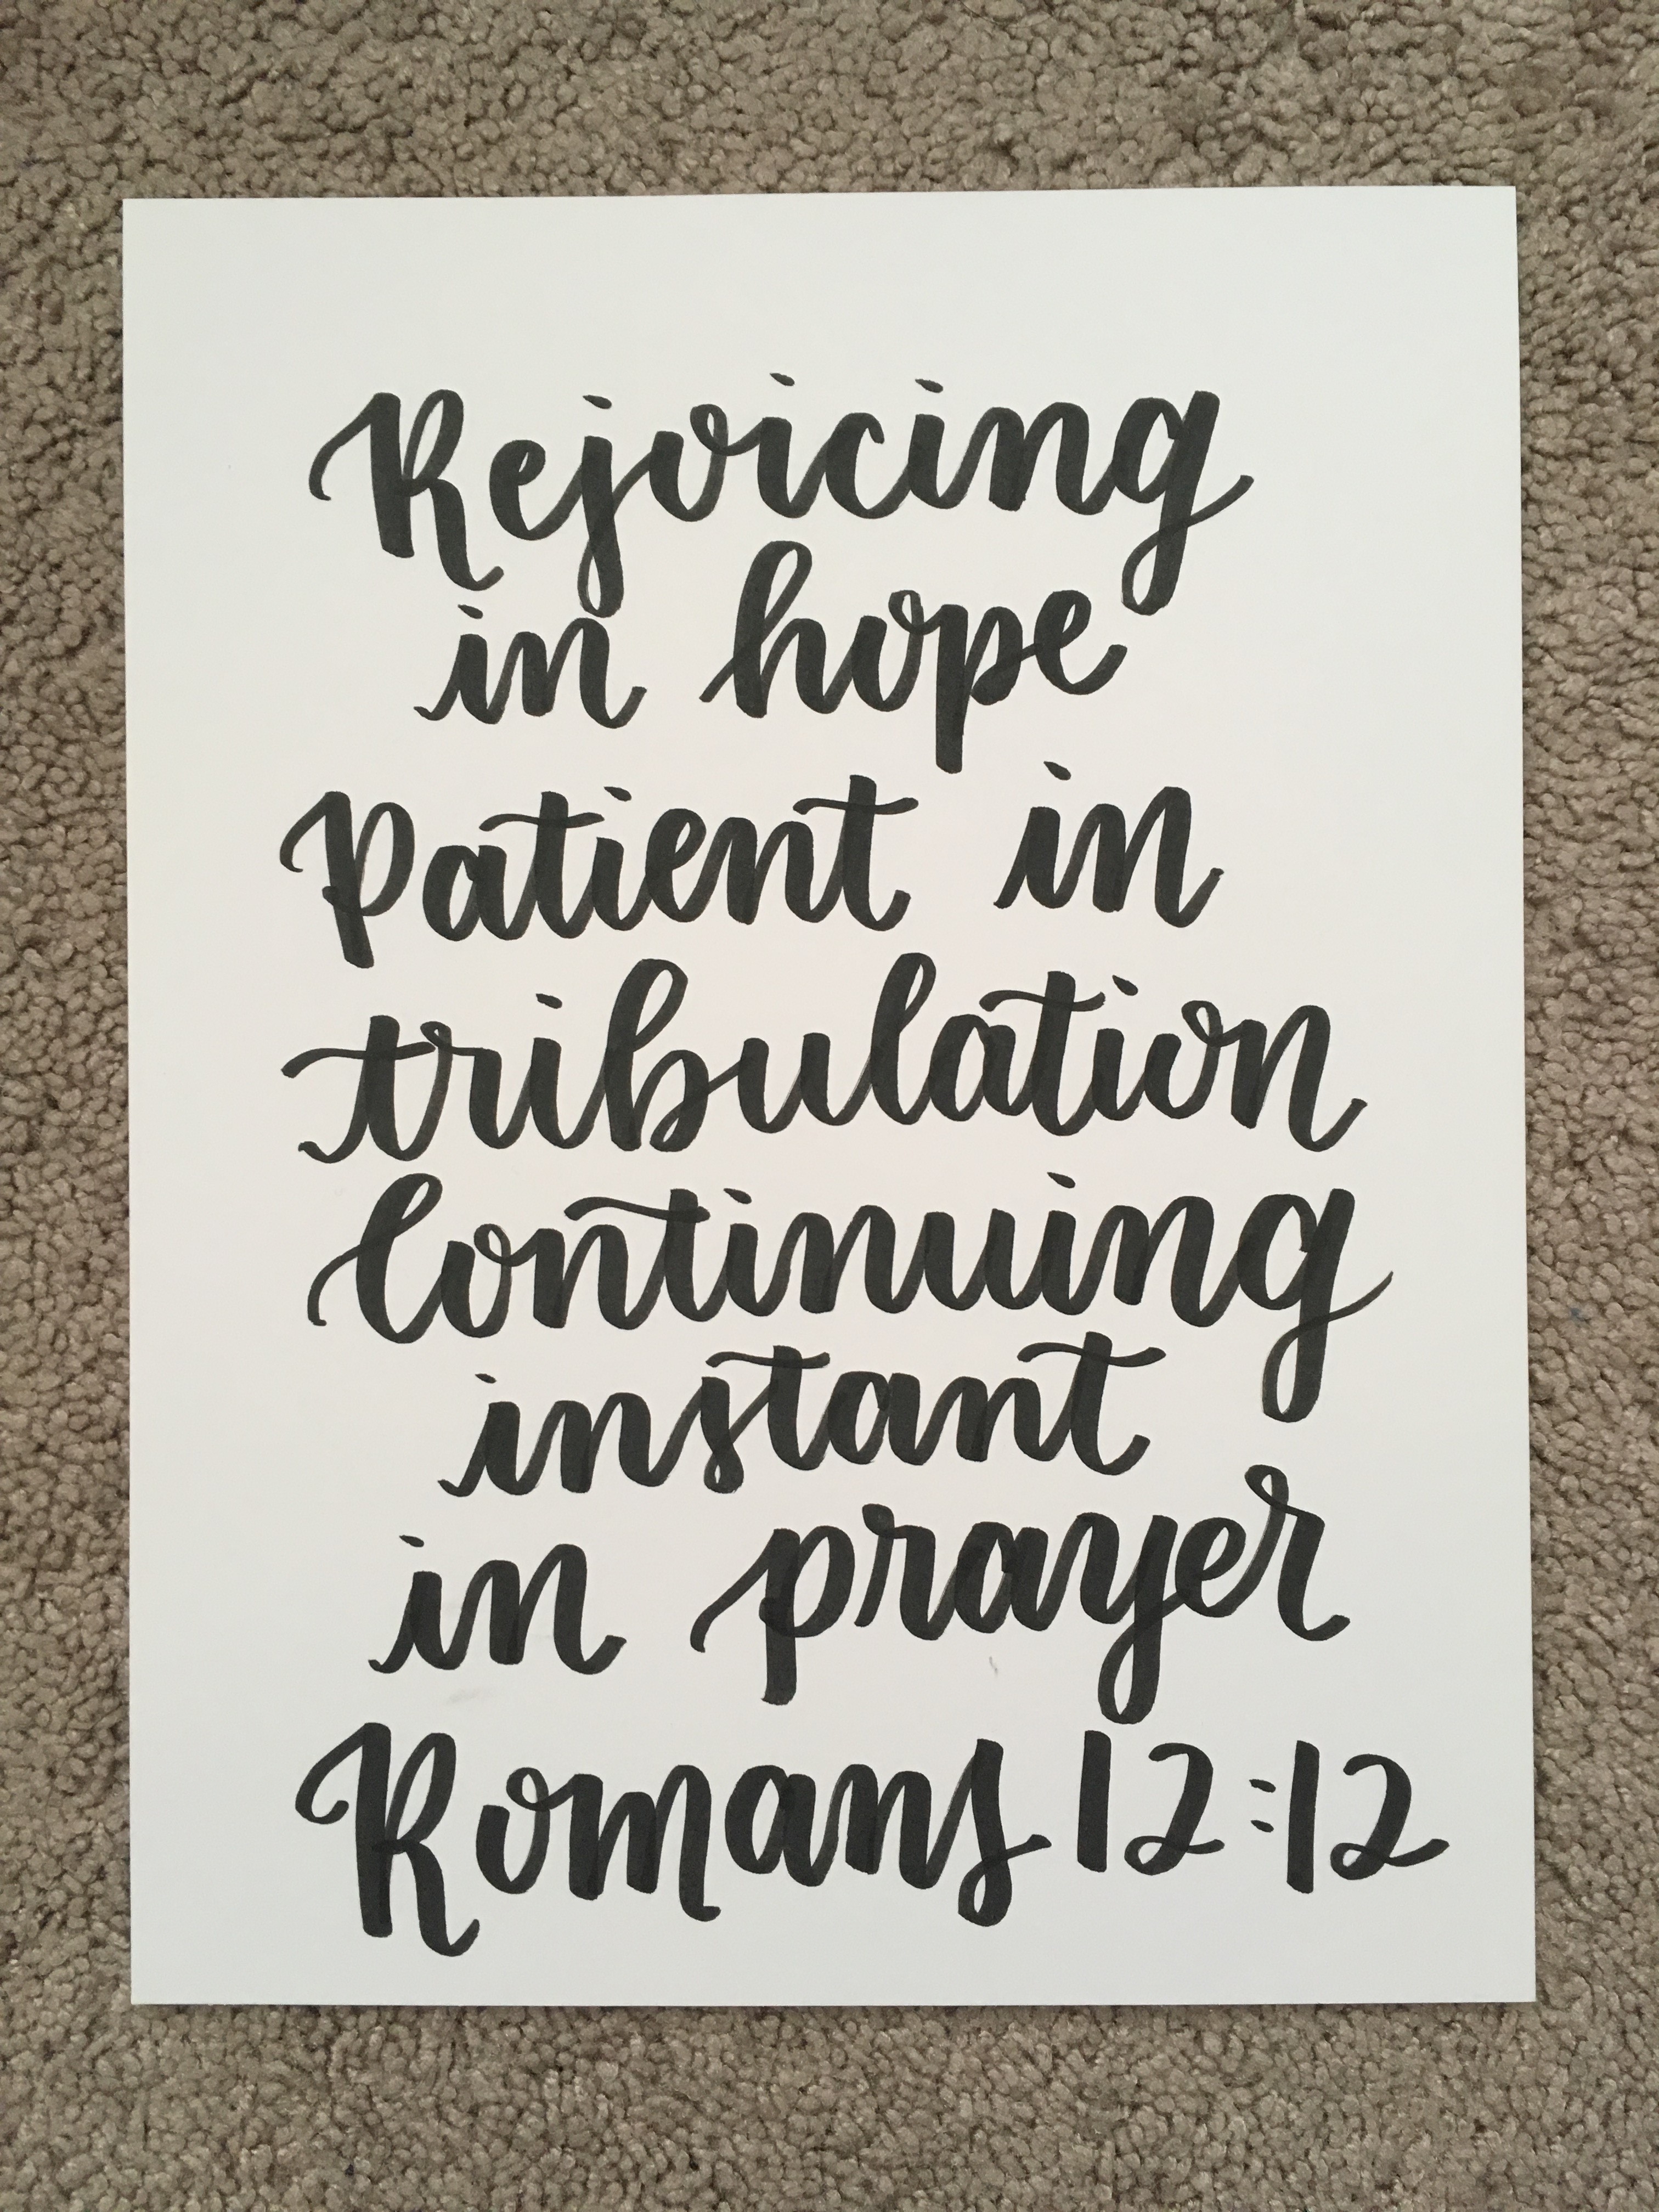 Rejoicing
in hope
Patient in
tribulation
Continuing
instant
in prayer
Romans 12:12